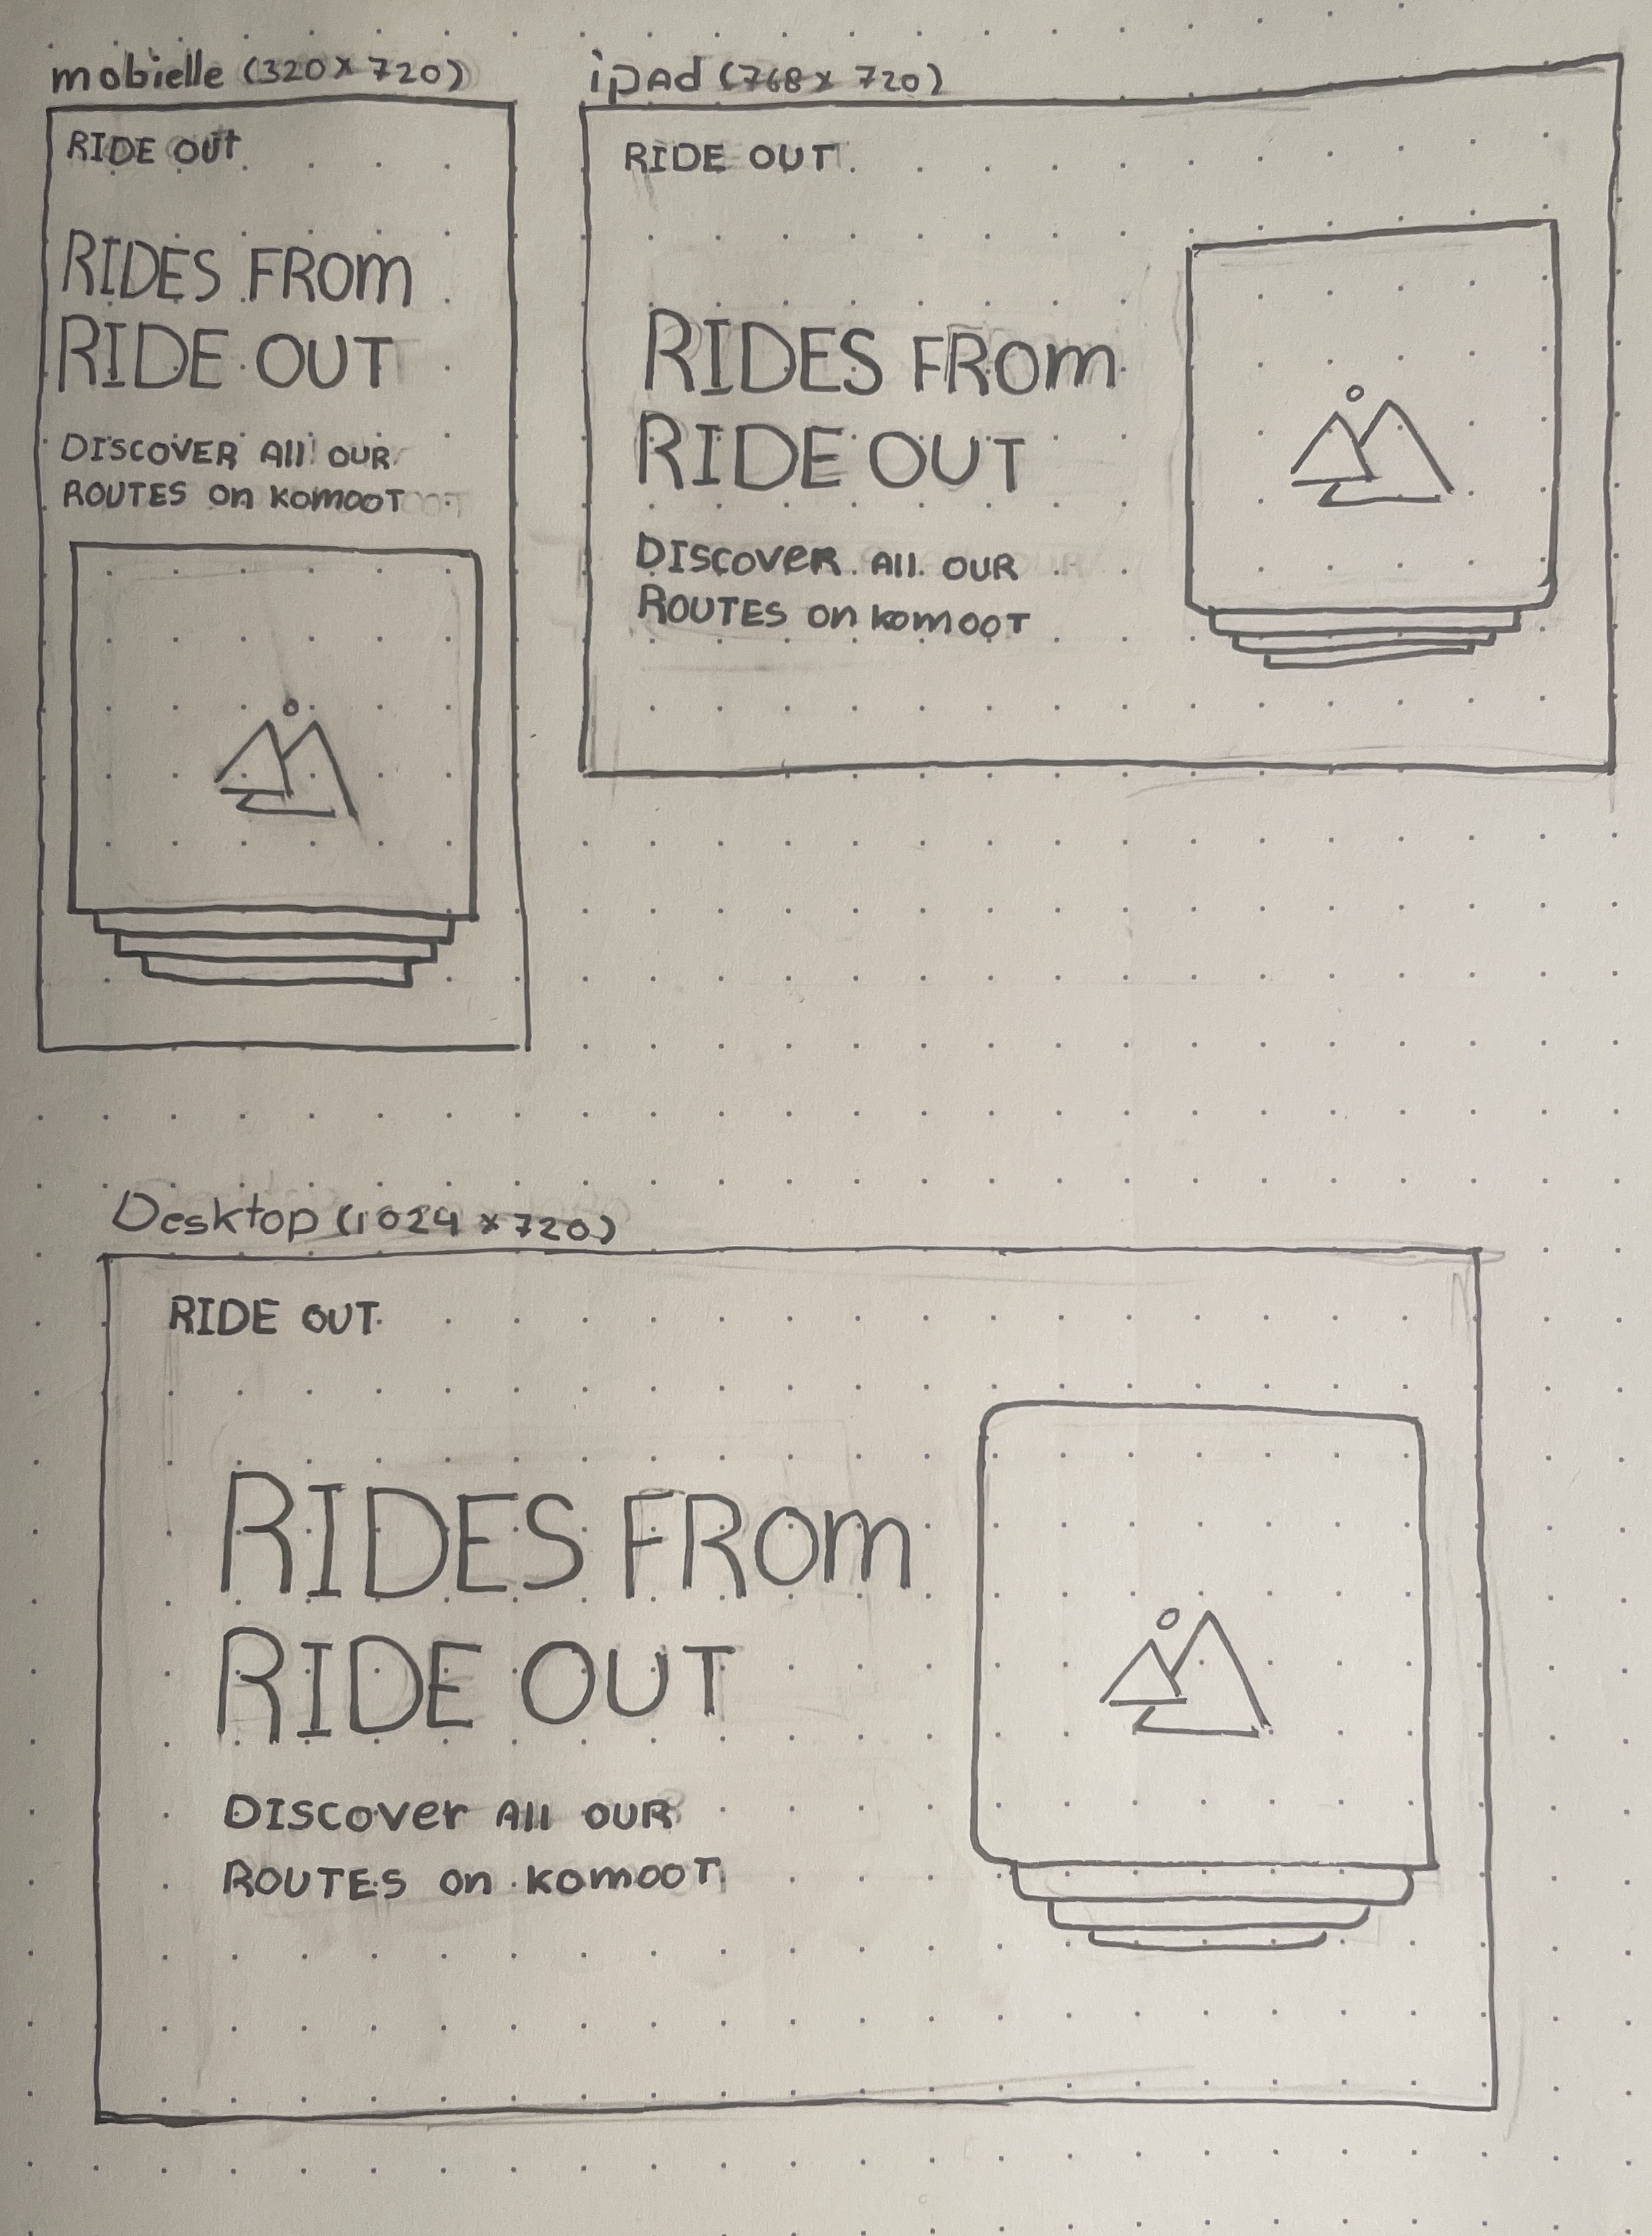 mobielle (320x720)
RIDE OUt
RIDES FROm
RIDE OUT
DISCOVER All OUR
ROUTES on komooT
ipad (768x 720)
RIDE OUT
RIDES FROm
RIDE OUT
DIScoveR All OUR
ROUTES on komooT
Desktop (1024 x 720)
RIDE OUT
RIDES FROm
RIDE OUT
DIScover All OUR
ROUTES on komooT